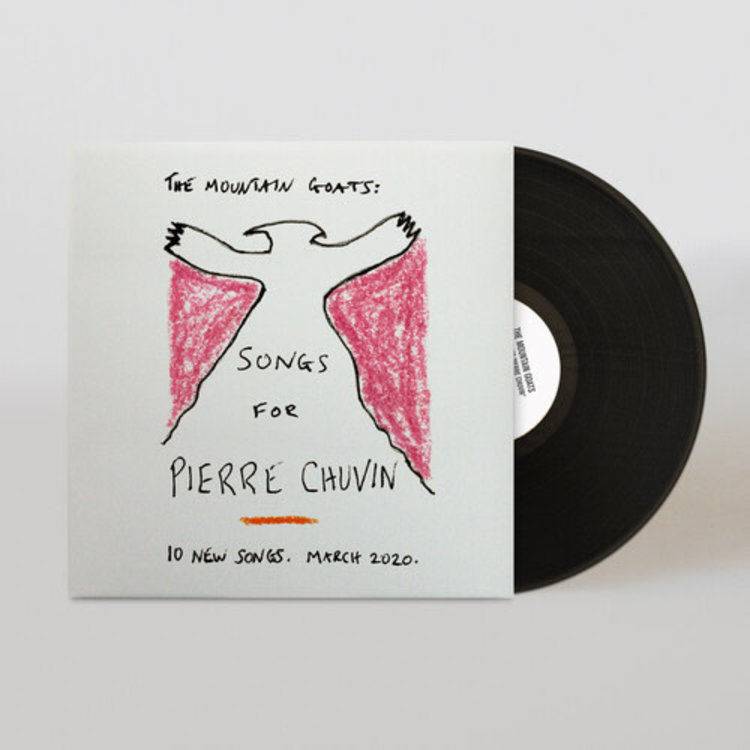 THE MOUNTAIN GOATS:
SONGS
FOR
PIERRE CHUVIN
10 NEW SONGS. MARCH 2020.
THE MOUNTAIN GOATS
PIERRE CHUVIN"